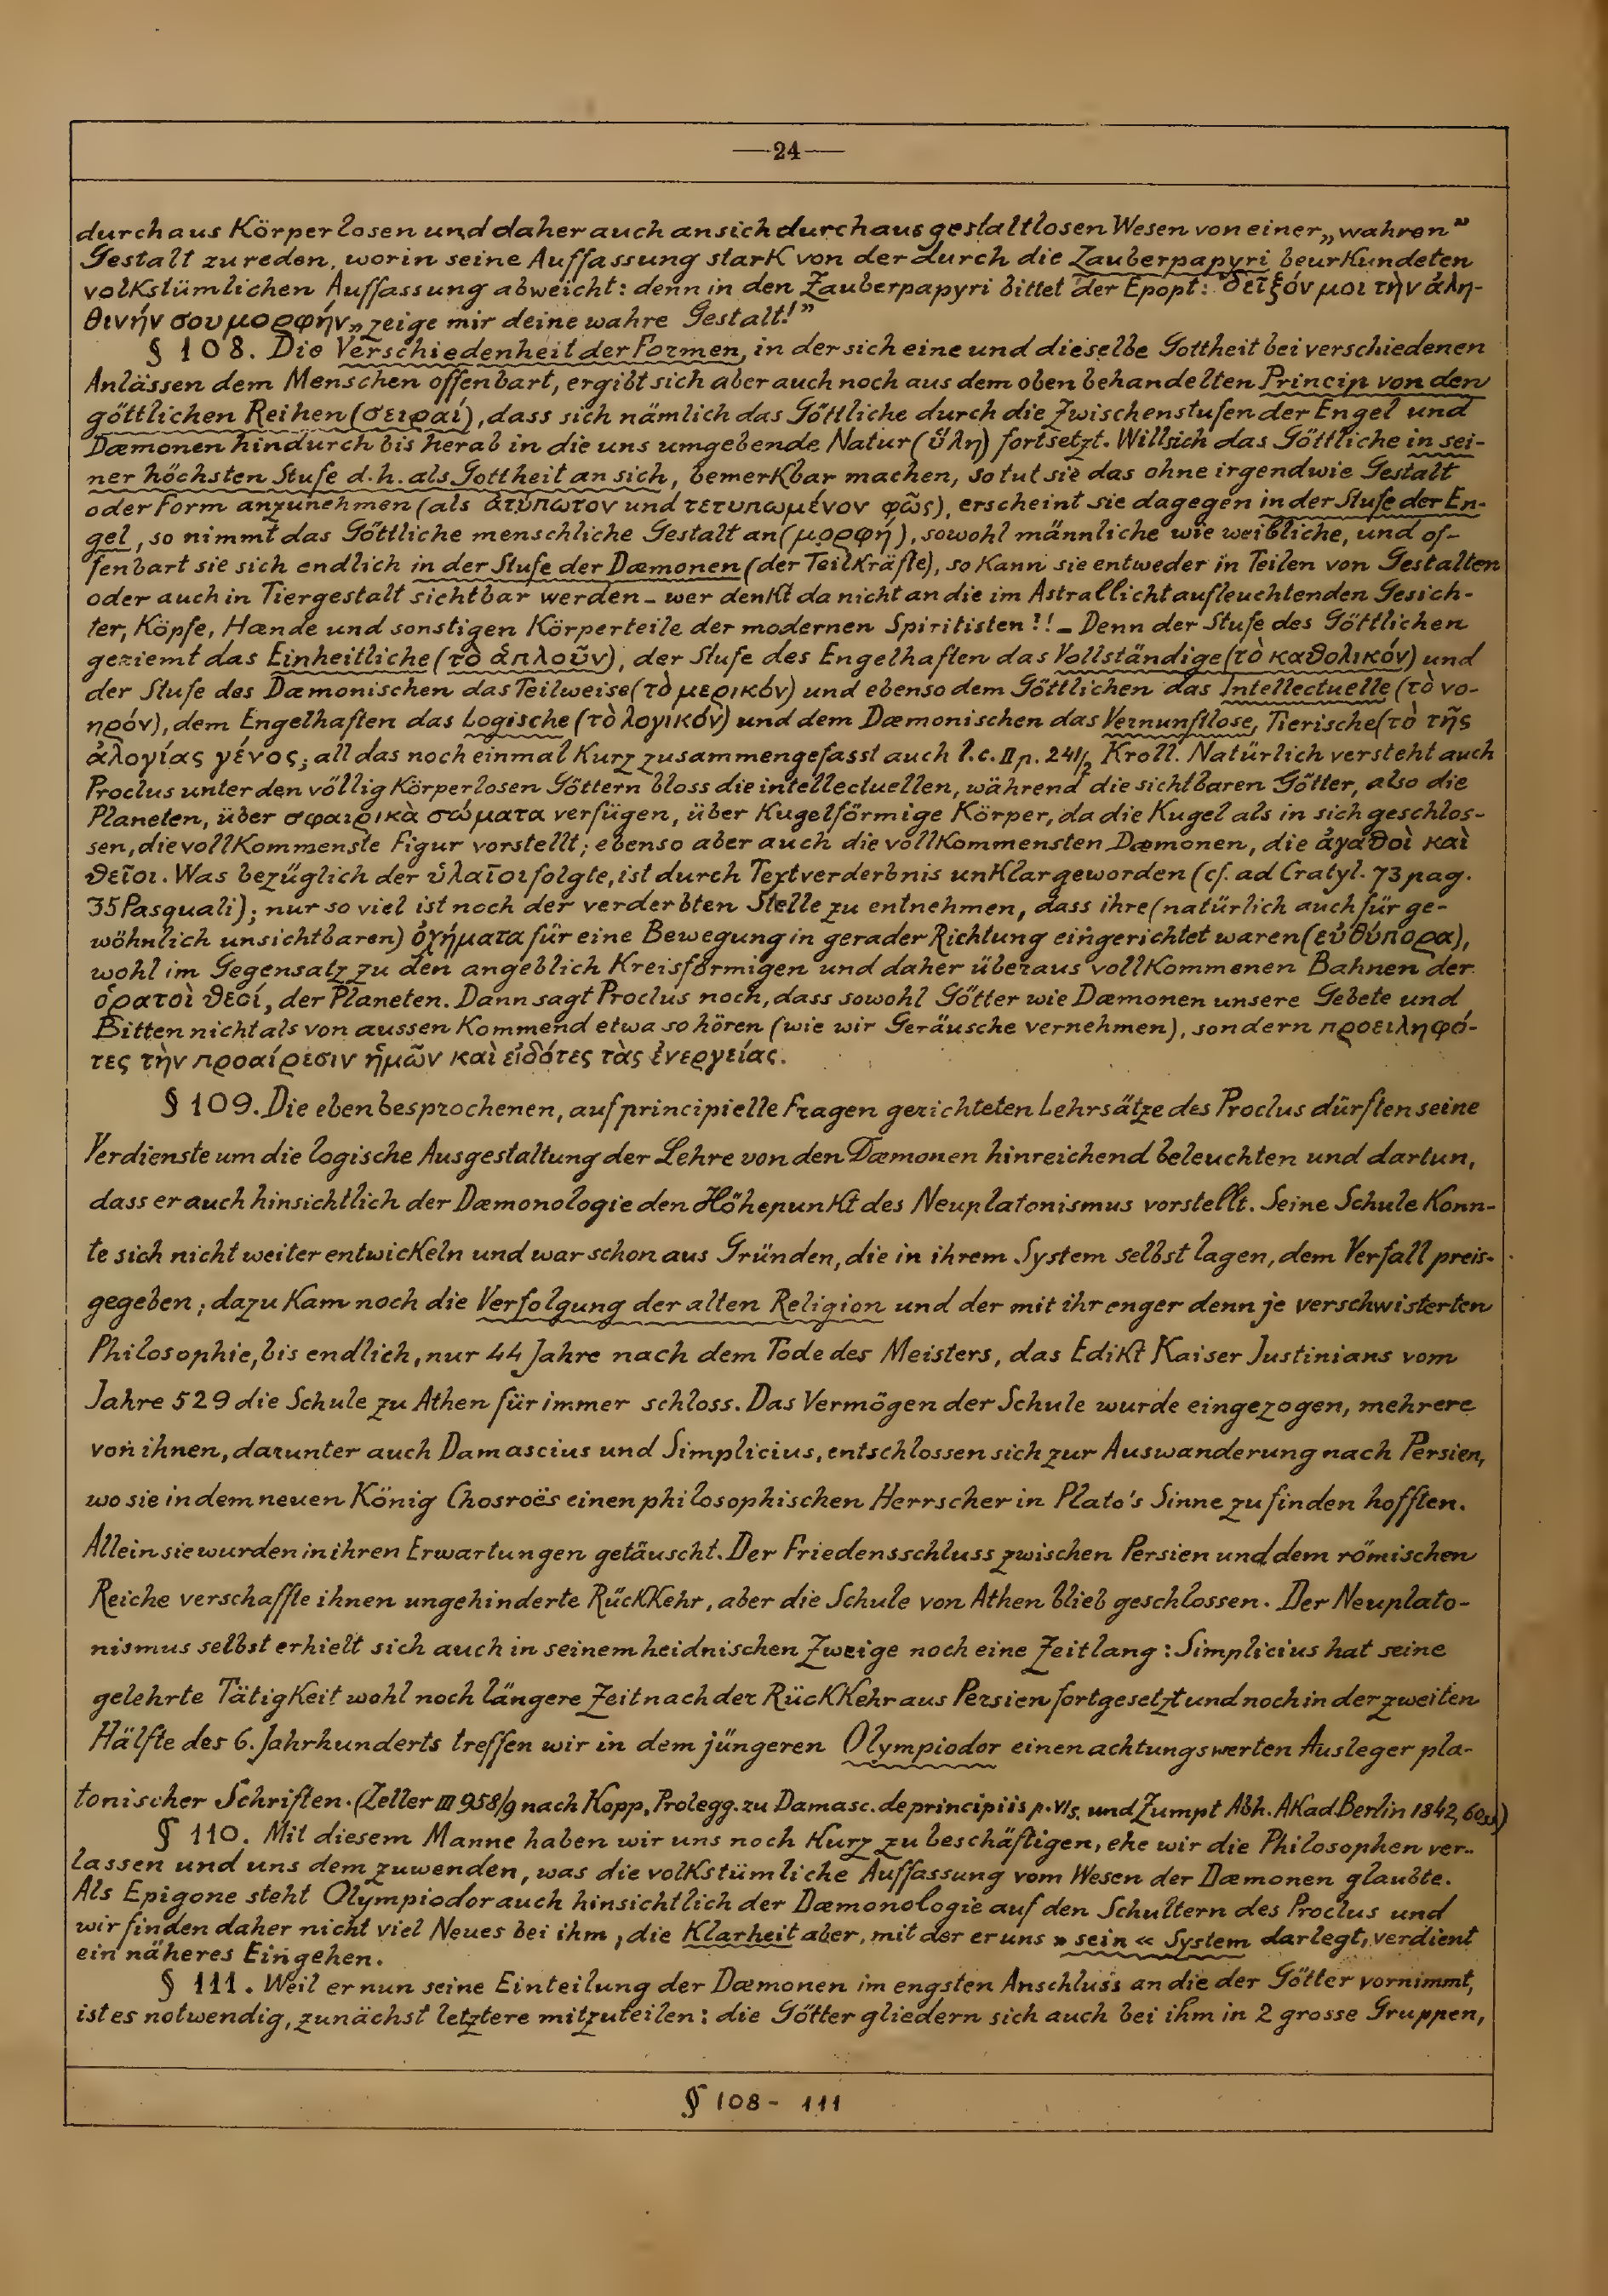 —24—
durchaus Körperlosen und daher auch an sich durchaus gestaltlosen Wesen von einer „wahren”
Gestalt zu reden, worin seine Auffassung stark von der durch die Zauberpapyri beurkundeten
volkstümlichen Auffassung abweicht: denn in den Zauberpapyri bittet der Epopt: "δεῖξόν μοι τὴν ἀλη-
θινήν σου μορφήν„ zeige mir deine wahre Gestalt!”
§ 108. Die Verschiedenheit der Formen, in der sich eine und dieselbe Gottheit bei verschiedenen
Anlässen dem Menschen offenbart, ergibt sich aber auch noch aus dem oben behandelten Princip von den
göttlichen Reihen (σειραί), dass sich nämlich das Göttliche durch die Zwischenstufen der Engel und
Dæmonen hindurch bis herab in die uns umgebende Natur (ὕλη) fortsetzt. Will sich das Göttliche in sei-
ner höchsten Stufe d.h. als Gottheit an sich, bemerkbar machen, so tut sie das ohne irgendwie Gestalt
oder Form anzunehmen (als ἀτύπωτον und τετυπωμένον φῶς), erscheint sie dagegen in der Stufe der En-
gel, so nimmt das Göttliche menschliche Gestalt an (μορφή), sowohl männliche wie weibliche, und of-
fenbart sie sich endlich in der Stufe der Dæmonen (der Teilkräfte), so kann sie entweder in Teilen von Gestalten
oder auch in Tiergestalt sichtbar werden – wer denkt da nicht an die im Astrallicht aufleuchtenden Gesich-
ter, Köpfe, Hænde und sonstigen Körperteile der modernen Spiritisten!! – Denn der Stufe des Göttlichen
geziemt das Einheitliche (τὸ ἁπλοῦν), der Stufe des Engelhaften das Vollständige (τὸ καθολικόν) und
der Stufe des Dæmonischen das Teilweise (τὸ μερικόν) und ebenso dem Göttlichen das Intellectuelle (τὸ νο-
ηρόν), dem Engelhaften das Logische (τὸ λογικόν) und dem Dæmonischen das Vernunftlose, Tierische (τὸ τῆς
ἀλογίας γένος; all das noch einmal kurz zusammengefasst auch l.c. II p. 241/2 Kroll. Natürlich versteht auch
Proclus unter den völlig körperlosen Göttern bloss die intellectuellen, während die sichtbaren Götter, also die
Planeten, über σφαιρικὰ σώματα verfügen, über kugelförmige Körper, da die Kugel als in sich geschlos-
sen, die vollkommenste Figur vorstellt; ebenso aber auch die vollkommensten Dæmonen, die ἀγαθοὶ καὶ
θεῖοι. Was bezüglich der ὑλαῖοι folgte, ist durch Textverderbnis unklar geworden (cf. ad Cratyl. 73 pag.
35 Pasquali); nur so viel ist noch der verderbten Stelle zu entnehmen, dass ihre (natürlich auch für ge-
wöhnlich unsichtbaren) ὀχήματα für eine Bewegung in gerader Richtung eingerichtet waren (εὐθύπορα),
wohl im Gegensatz zu den angeblich kreisförmigen und daher überaus vollkommenen Bahnen der
ὁρατοὶ θεοί, der Planeten. Dann sagt Proclus noch, dass sowohl Götter wie Dæmonen unsere Gebete und
Bitten nicht als von aussen kommend etwa so hören (wie wir Geräusche vernehmen), sondern προειληφό-
τες τὴν προαίρεσιν ἡμῶν καὶ εἰδότες τὰς ἐνεργείας.
§ 109. Die eben besprochenen, auf principielle Fragen gerichteten Lehrsätze des Proclus dürften seine
Verdienste um die logische Ausgestaltung der Lehre von den Dæmonen hinreichend beleuchten und dartun,
dass er auch hinsichtlich der Dæmonologie den Höhepunkt des Neuplatonismus vorstellt. Seine Schule konn-
te sich nicht weiter entwickeln und war schon aus Gründen, die in ihrem System selbst lagen, dem Verfall preis-
gegeben; dazu kam noch die Verfolgung der alten Religion und der mit ihr enger denn je verschwisterten
Philosophie, bis endlich, nur 44 Jahre nach dem Tode des Meisters, das Edikt Kaiser Justinians vom
Jahre 529 die Schule zu Athen für immer schloss. Das Vermögen der Schule wurde eingezogen, mehrere
von ihnen, darunter auch Damascius und Simplicius, entschlossen sich zur Auswanderung nach Persien,
wo sie in dem neuen König Chosroës einen philosophischen Herrscher in Plato's Sinne zu finden hofften.
Allein sie wurden in ihren Erwartungen getäuscht. Der Friedensschluss zwischen Persien und dem römischen
Reiche verschaffte ihnen ungehinderte Rückkehr, aber die Schule von Athen blieb geschlossen. Der Neuplato-
nismus selbst erhielt sich auch in seinem heidnischen Zweige noch eine Zeitlang: Simplicius hat seine
gelehrte Tätigkeit wohl noch längere Zeit nach der Rückkehr aus Persien fortgesetzt und noch in der zweiten
Hälfte des 6. Jahrhunderts treffen wir in dem jüngeren Olympiodor einen achtungswerten Ausleger pla-
tonischer Schriften. (Zeller III 958/9 nach Kopp, Prolegg. zu Damasc. de principiis p. und Zumpt Abh. Akad Berlin 1842, 60
§ 110. Mit diesem Manne haben wir uns noch kurz zu beschäftigen, ehe wir die Philosophen ver-
lassen und uns dem zuwenden, was die volkstümliche Auffassung vom Wesen der Dæmonen glaubte.
Als Epigone steht Olympiodor auch hinsichtlich der Dæmonologie auf den Schultern des Proclus und
wir finden daher nicht viel Neues bei ihm, die Klarheit aber, mit der er uns » sein « System darlegt, verdient
ein näheres Eingehen.
§ 111. Weil er nun seine Einteilung der Dæmonen im engsten Anschluss an die der Götter vornimmt,
ist es notwendig, zunächst letztere mitzuteilen: die Götter gliedern sich auch bei ihm in 2 grosse Gruppen,
§ 108 - 111